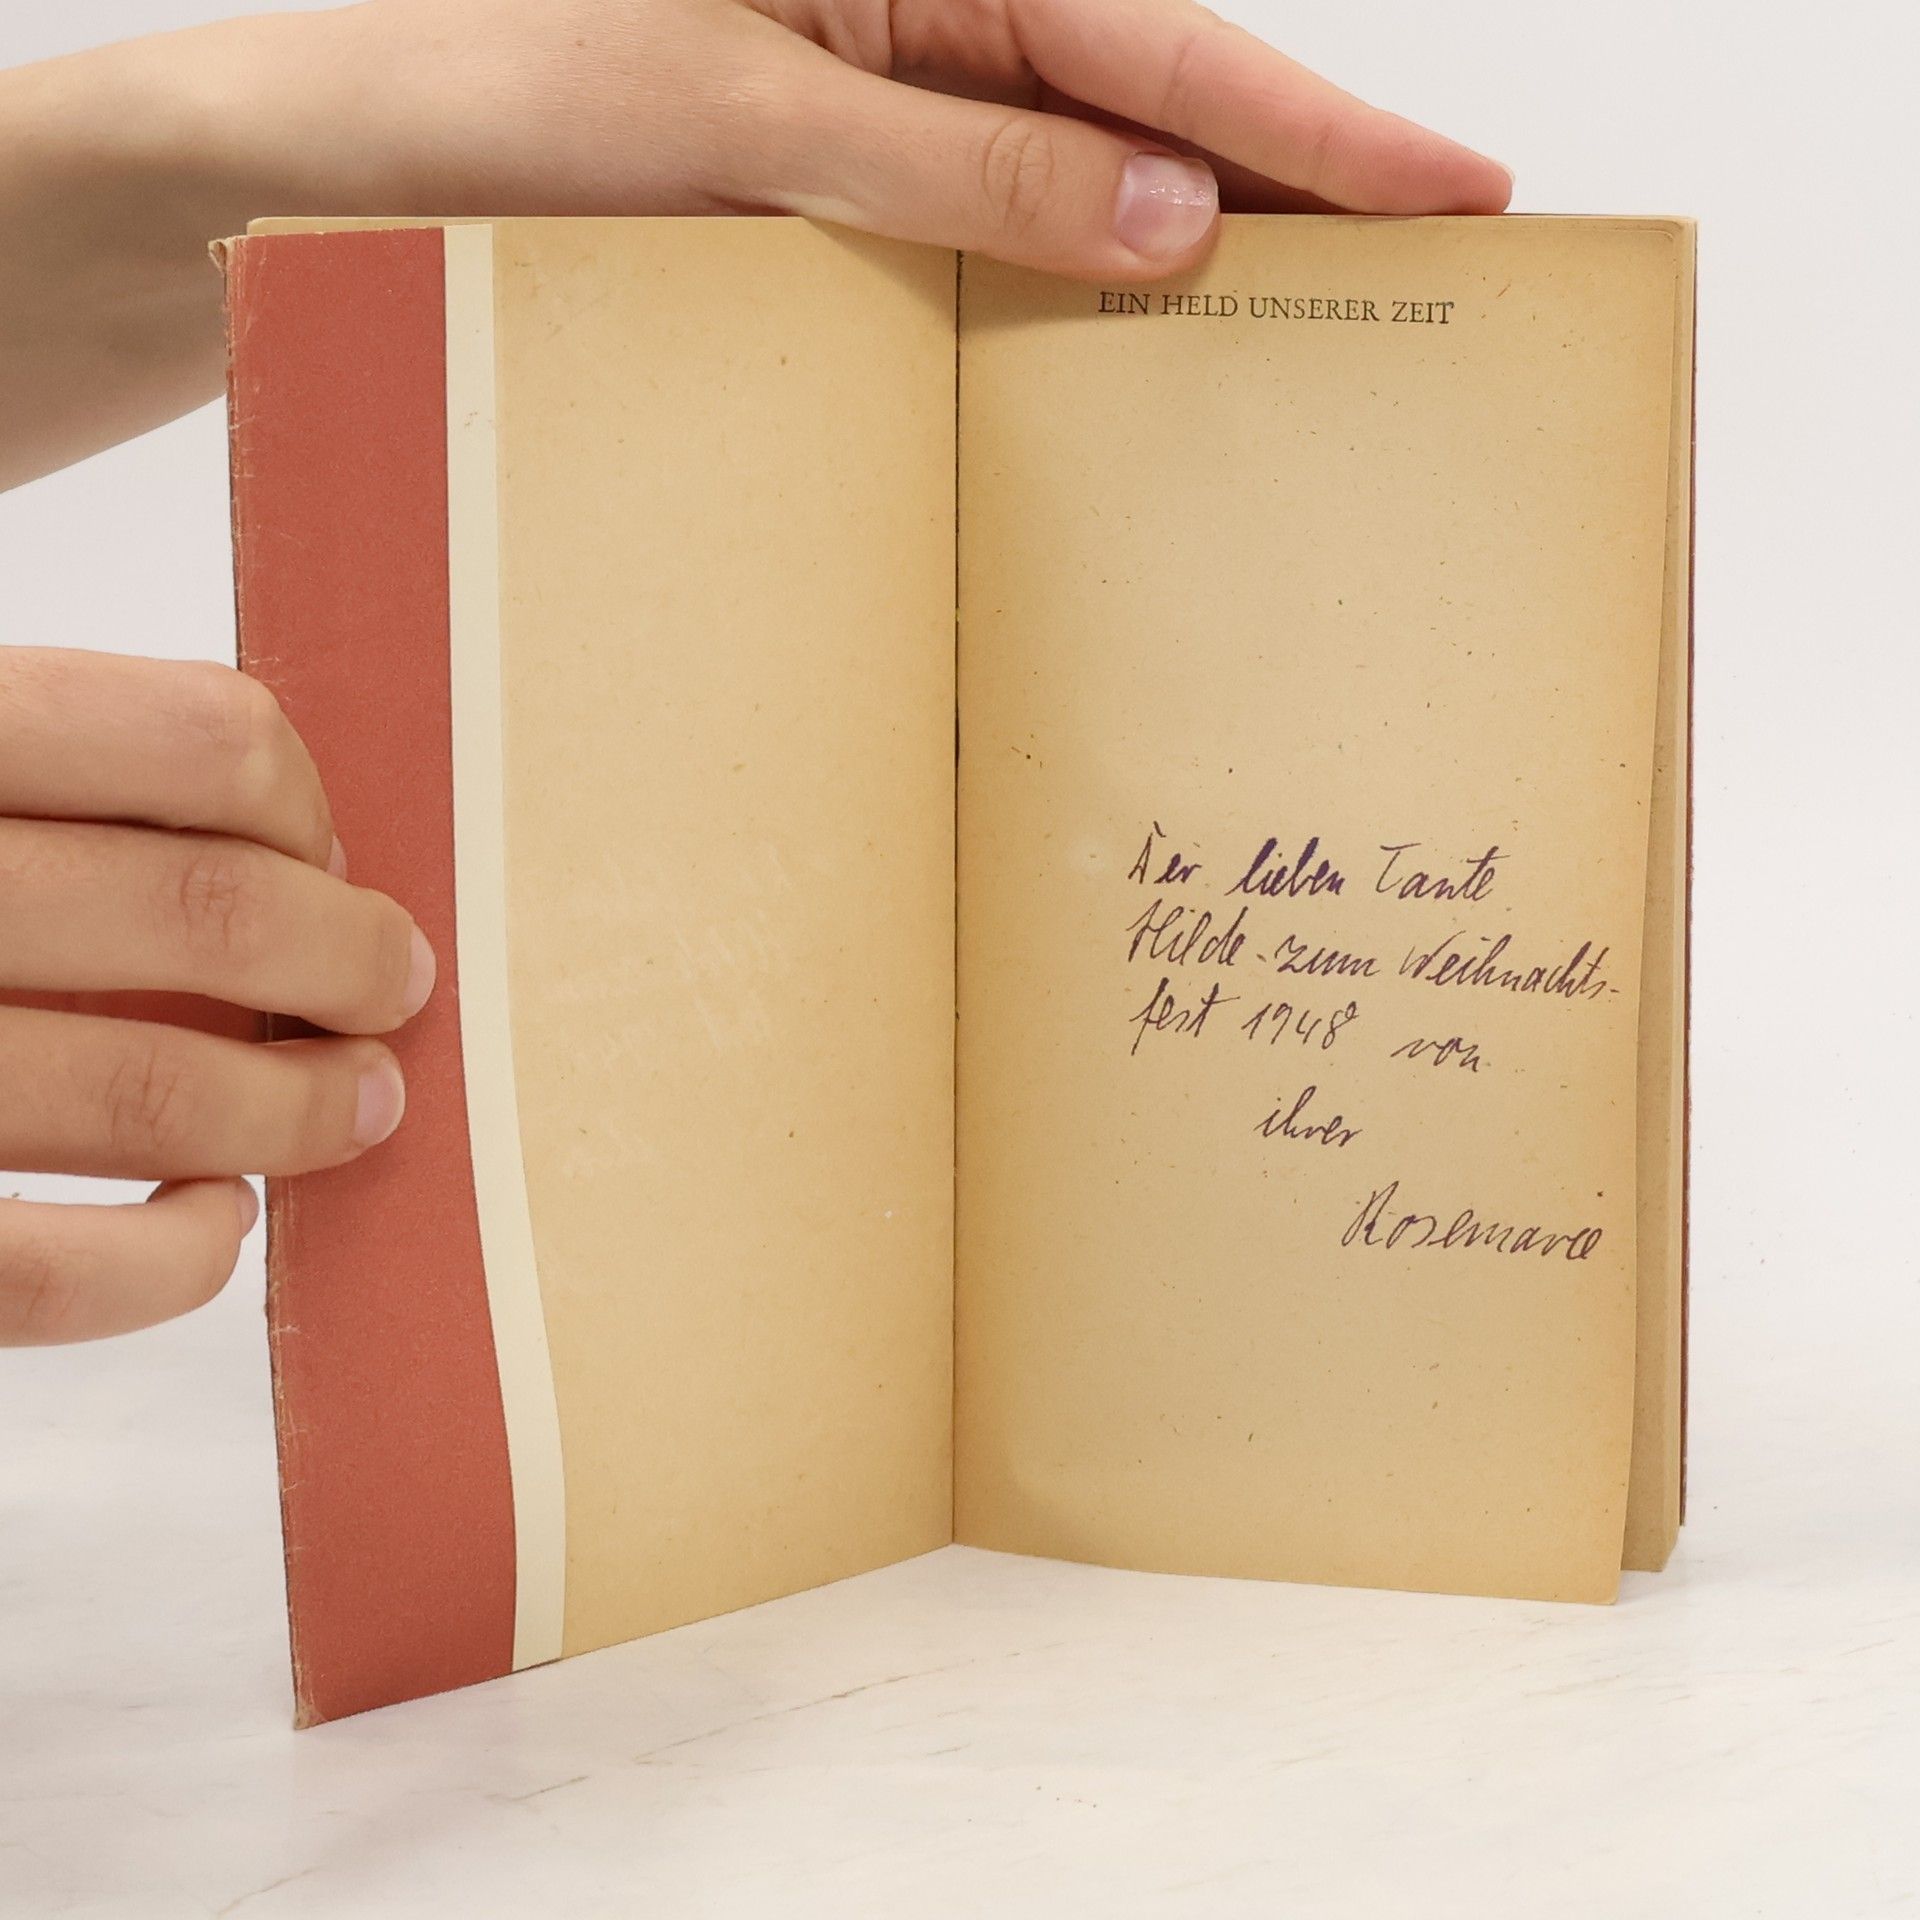 EIN HELD UNSERER ZEIT
Der lieben Tante
Hilde - zum Weihnachts-
fest 1948 von
ihrer
Rosemarie